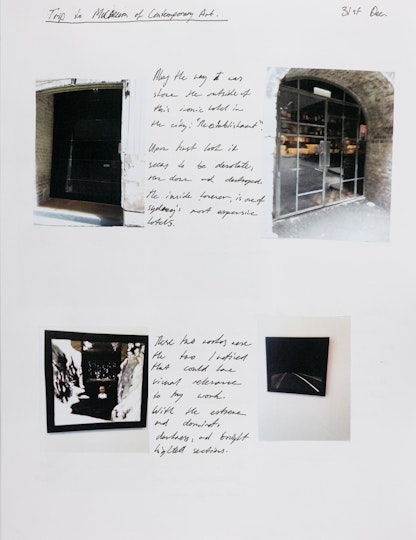 Trip to Museum of Contemporary Art.
31st Dec.
Along the way I was
shown the outside of
this iconic hotel in
the city: "The establishment".
Upon first look it
seems to be desolate,
run down and destroyed.
The inside however, is one of
sydney's most expensive
hotels.
These two works were
the two I noticed
that could have
visual relevance
to my work.
With the extreme
and dominate
darkness, and bright
lighted sections.